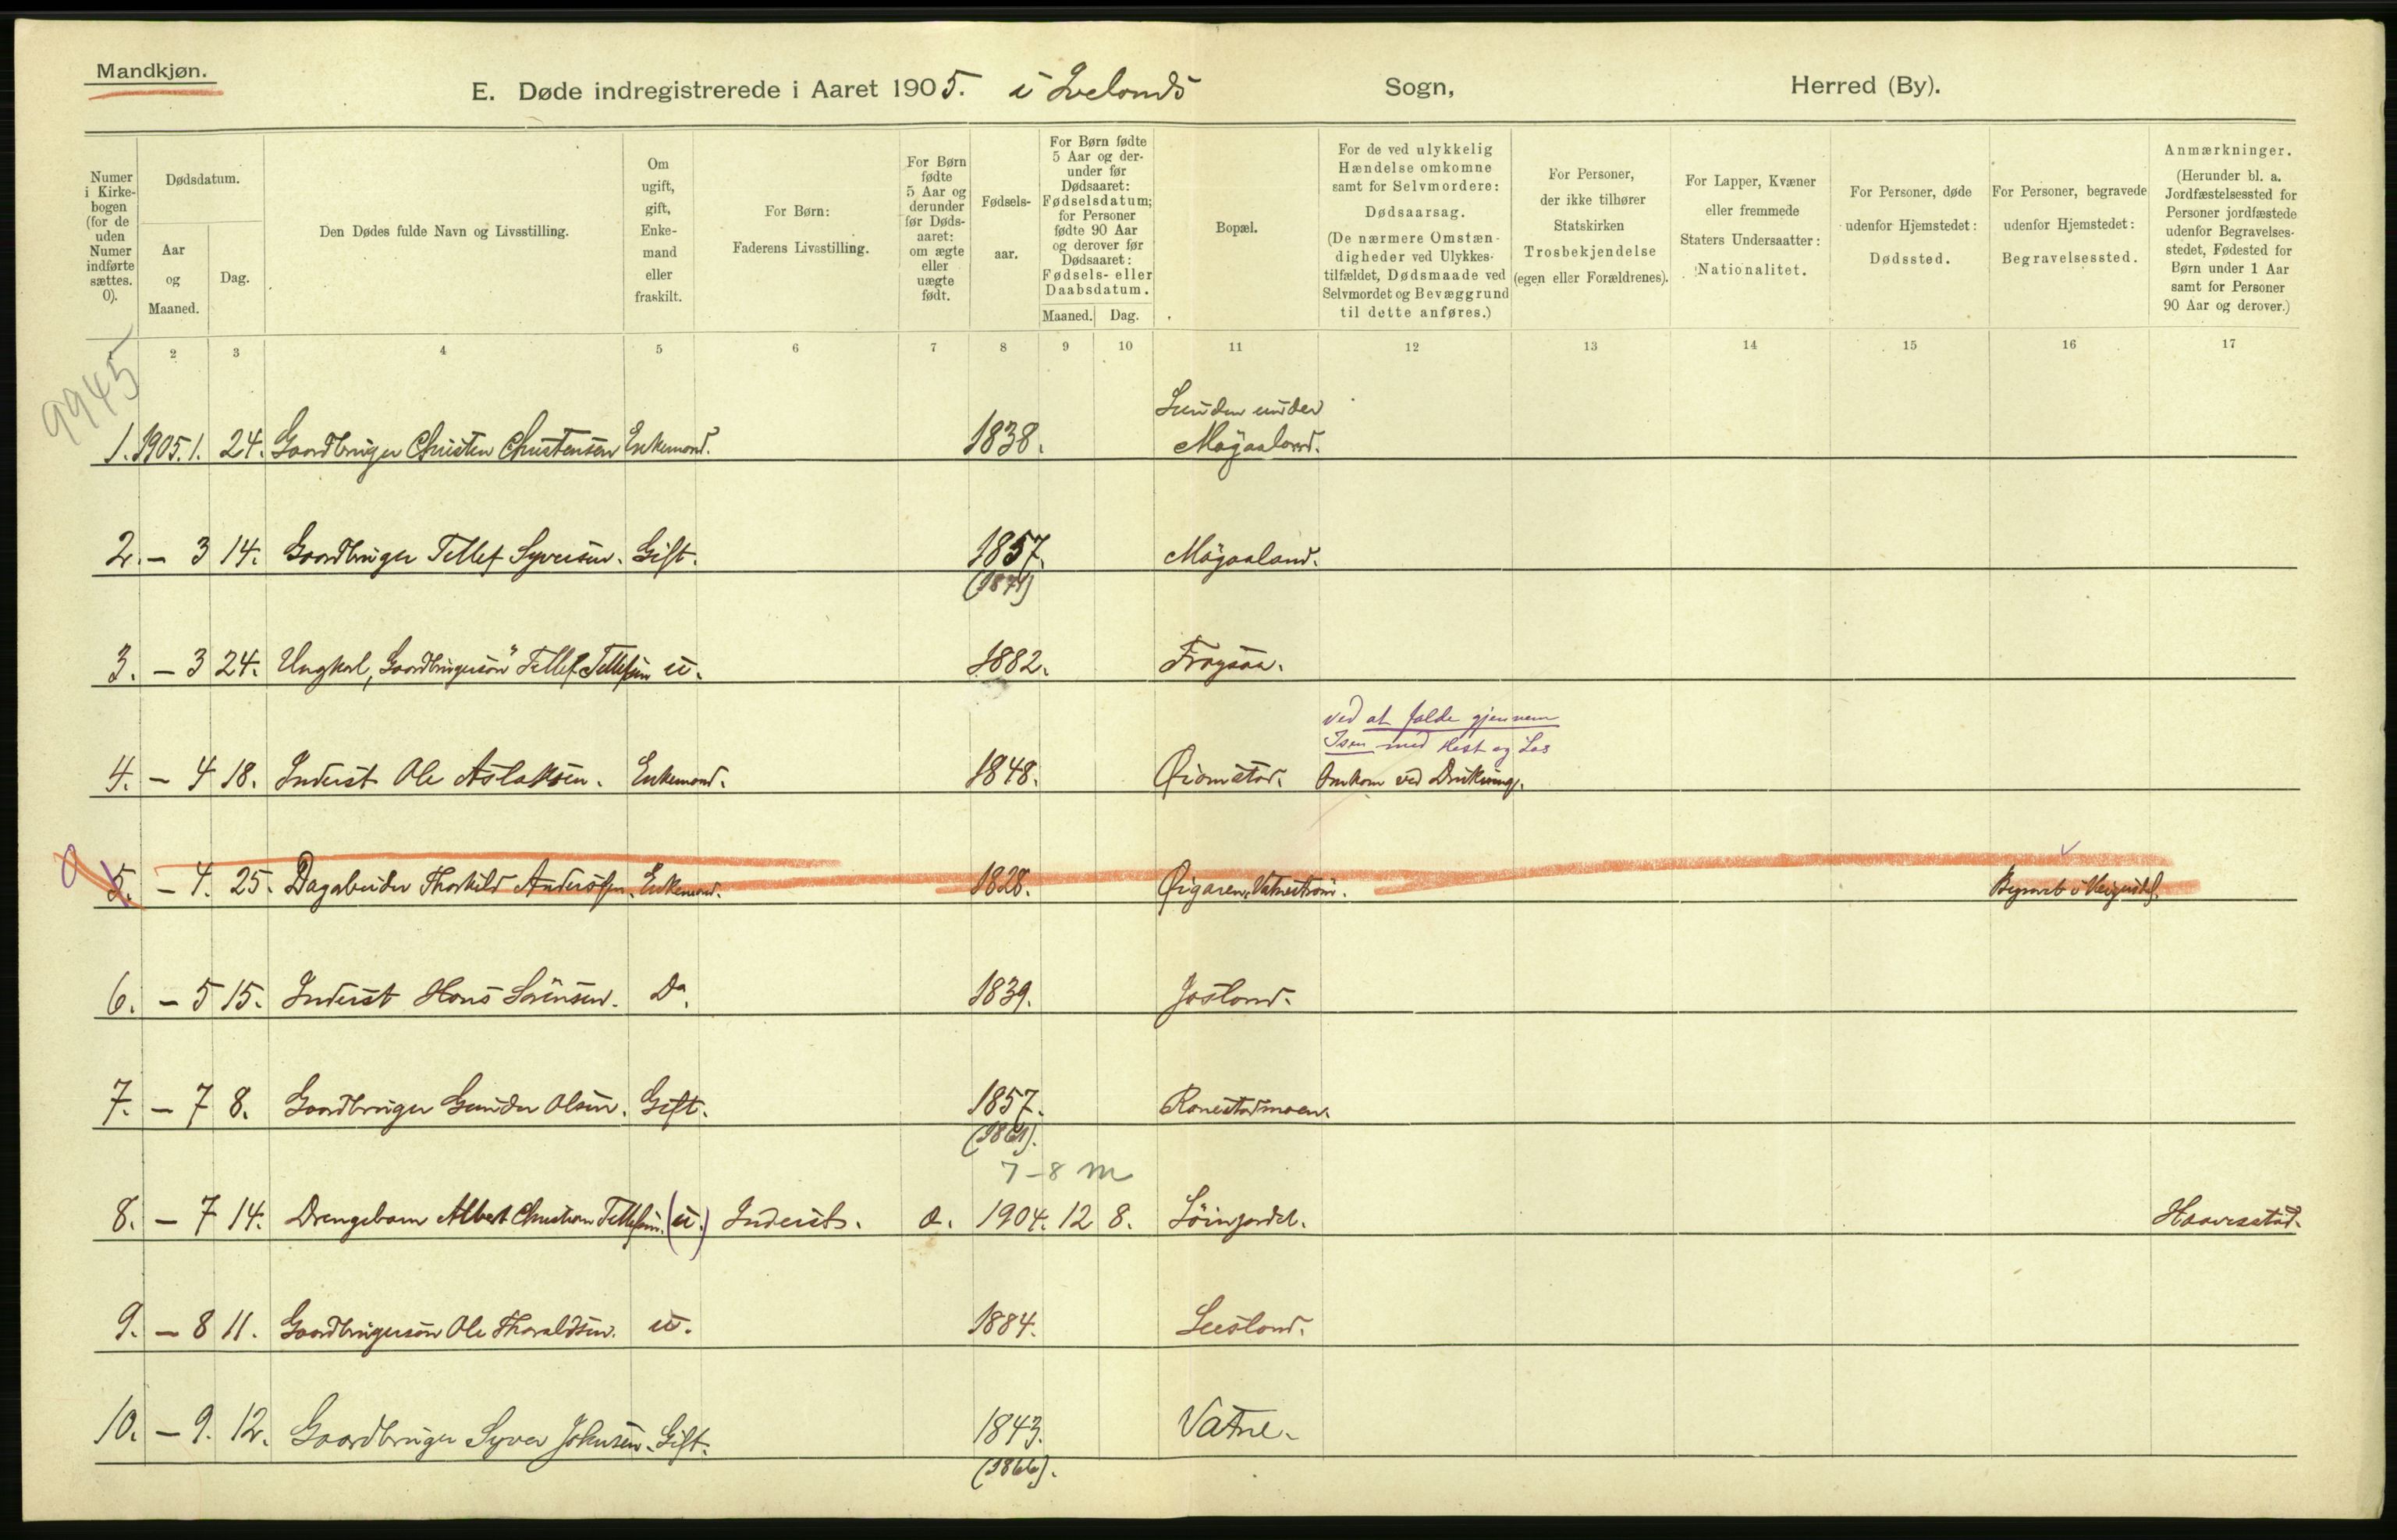 Mandkjøn.
E. Døde indregistrerede i Aaret 1905. i Ivelands Sogn, Herred (By).
Numer i Kirke-bogen (for de uden Numer indførte sættes. 0).
Dødsdatum.
Aar og Maaned.
Dag.
Den Dødes fulde Navn og Livsstilling.
Om ugift, gift, Enke-mand eller fraskilt.
For Børn: Faderens Livsstilling.
For Børn fødte 5 Aar og derunder før Døds-aaret: om ægte eller uægte født.
Fødsels-aar.
For Børn fødte 5 Aar og der-under før Dødsaaret: Fødselsdatum; for Personer fødte 90 Aar og derover før Dødsaaret: Fødsels- eller Daabsdatum.
Maaned. Dag.
Bopæl.
For de ved ulykkelig Hændelse omkomne samt for Selvmordere: Dødsaarsag. (De nærmere Omstæn-digheder ved Ulykkes-tilfældet, Dødsmaade ved Selvmordet og Bevæggrund til dette anføres.)
For Personer, der ikke tilhører Statskirken Trosbekjendelse (egen eller Forældrenes).
For Lapper, Kvæner eller fremmede Staters Undersaatter: Nationalitet.
For Personer, døde udenfor Hjemstedet: Dødssted.
For Personer, begravede udenfor Hjemstedet: Begravelsessted.
Anmærkninger. (Herunder bl. a. Jordfæstelsessted for Personer jordfæstede udenfor Begravelses-stedet, Fødested for Børn under 1 Aar samt for Personer 90 Aar og derover.)
2 3 4 5 6 7 8 9 10 11 12 13 14 15 16 17
9945
Lunden under
1. 1905. 1. 24. Gaardbruger Christen Christensen Enkemand. 1838. Møgaaland.
2. – 3 14. Gaardbruger Tellef Syversen. Gift. 1857. Møgaaland.
(1871)
3. – 3 24. Ungkarl, Gaardbrugersøn Tellef Tellefsen u. 1882. Frøysaa.
ved at falde gjennem
Isen med Hest og Las
4. – 4 18. Inderst Ole Aslaksen. Enkemand. 1848. Omkom ved Drukning.
0
5. – 4. 25. Dagarbeider Thorkild Andersen. Enkemand. 1828. Vatnestrøm. Begravet i
6. – 5 15. Inderst Hans Sørensen. Do. 1839. Jøsland.
7. – 7 8. Gaardbruger Gunder Olsen. Gift. 1857. Ranestadmoen.
(1861).
7–8 m
8. – 7 14. Drengebarn Albert Christian Tellefsen. (u.) Inderst. æ. 1904. 12 8. Haaversstad.
9. – 8 11. Gaardbrugersøn Ole Thoraldsen. u. 1884. Leesland.
10. – 9. 12. Gaardbruger Syver Johnsen. Gift. 1843. Vatne.
(1866).